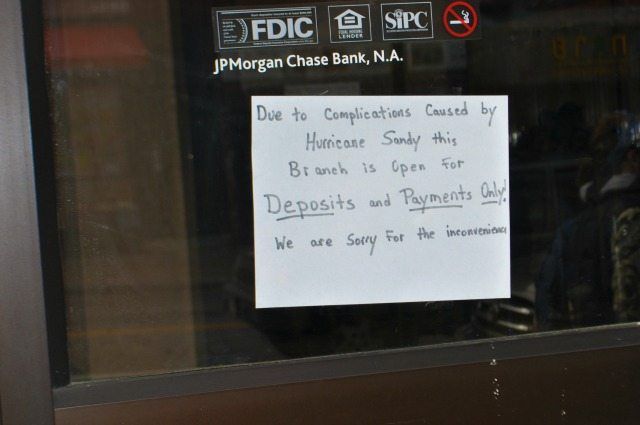 FDIC
EQUAL HOUSING
LENDER
SIPC
JPMorgan Chase Bank, N.A.
Due to Complications Caused by
Hurricane Sandy this
Branch is Open For
Deposits and Payments Only!
We are Sorry For the inconvenience